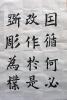 因循何必
改作於是
斲彫為樸